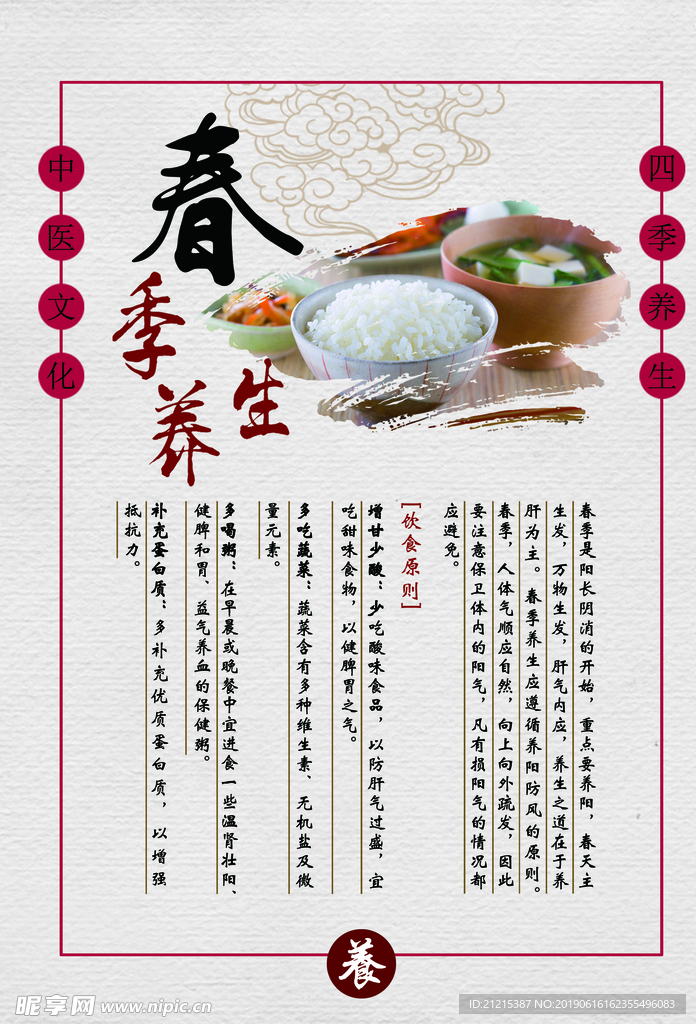 中医文化
四季养生
春
季
养生
春季是阳长阴消的开始，重点要养阳，春天主
生发，万物生发，肝气内应，养生之道在于养
肝为主。春季养生应遵循养阳防风的原则。
春季，人体气顺应自然，向上向外疏发，因此
要注意保卫体内的阳气，凡有损阳气的情况都
应避免。
[饮食原则]
增甘少酸：少吃酸味食品，以防肝气过盛，宜
吃甜味食物，以健脾胃之气。
多吃蔬菜：蔬菜含有多种维生素、无机盐及微
量元素。
多喝粥：在早晨或晚餐中宜进食一些温肾壮阳、
健脾和胃、益气养血的保健粥。
补充蛋白质：多补充优质蛋白质，以增强
抵抗力。
養
昵享网 www.nipic.cn
ID:21215387 NO:20190616162355496083